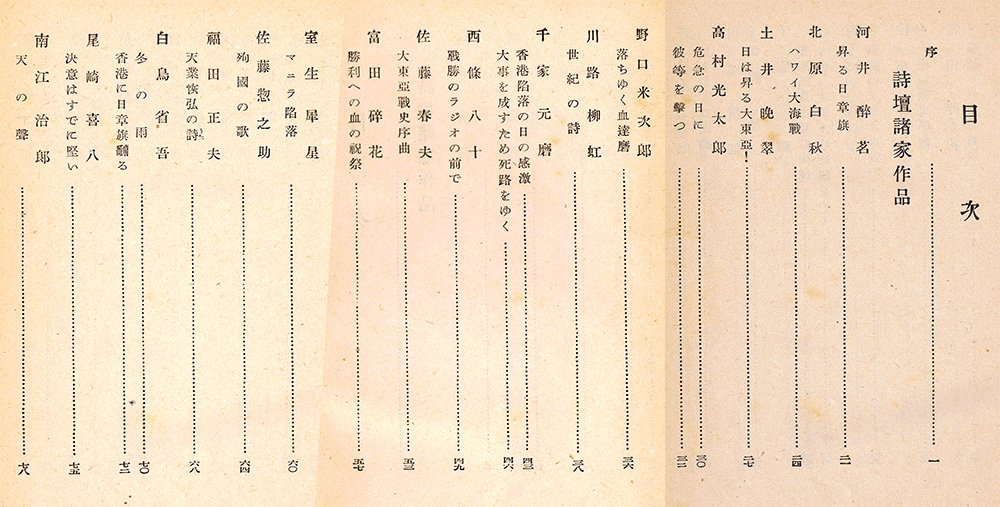 目次
序 一
詩壇諸家作品
河井醉茗
昇る日章旗 二一
北原白秋
ハワイ大海戰 二四
土井晚翠
日は昇る大東亞! 二七
高村光太郎
危急の日に 三〇
彼等を擊つ 三二
野口米次郎
落ちゆく血達磨 三六
川路柳虹
世紀の詩 三八
千家元磨
香港陷落の日の感激 四三
大事を成すため死路をゆく 四六
西條八十
戰勝のラジオの前で 四九
佐藤春夫
大東亞戰史序曲 五三
富田碎花
勝利への血の祝祭 五七
室生犀星
マニラ陷落 六〇
佐藤惣之助
殉國の歌 六四
福田正夫
天業恢弘の詩 六八
白鳥省吾
冬の雨 七〇
香港に日章旗翻る 七二
尾崎喜八
決意はすでに堅い 七五
南江治郎
天の聲 七八